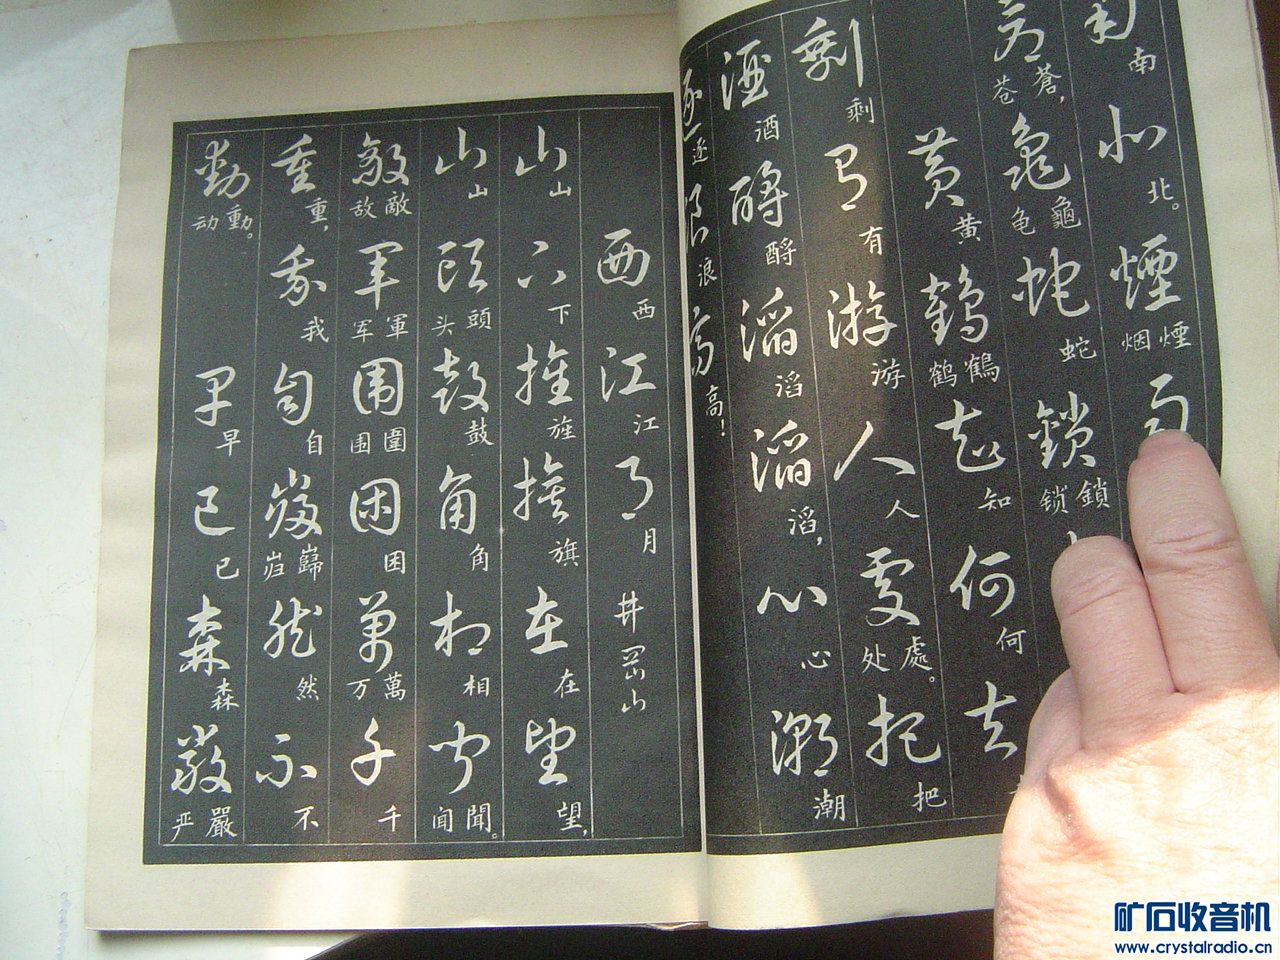 南 南 北 北。 煙 煙 烟 雨
蒼 蒼, 苍 龜 龜 龟 蛇 蛇 鎖 鎖 锁
黄 黄 鶴 鶴 鹤 知 知 何 何 去
剩 剩 有 有 游 游 人 人 處 處。 处 把 把
酒 酒 酹 酹 滔 滔 滔 滔, 心 心 潮 潮
逐 逐 浪 浪 高 高!
西 西 江 江 月 月 井岡山
山 山 下 下 旌 旌 旗 旗 在 在 望 望,
山 山 頭 頭 头 鼓 鼓 角 角 相 相 聞 聞。 闻
敵 敵 敌 軍 軍 军 圍 圍 围 困 困 萬 萬 万 千 千
重 重, 我 我 自 自 巋 巋 岿 然 然 不 不
動 動。 动 早 早 已 已 森 森 嚴 嚴 严
矿石收音机
www.crystalradio.cn